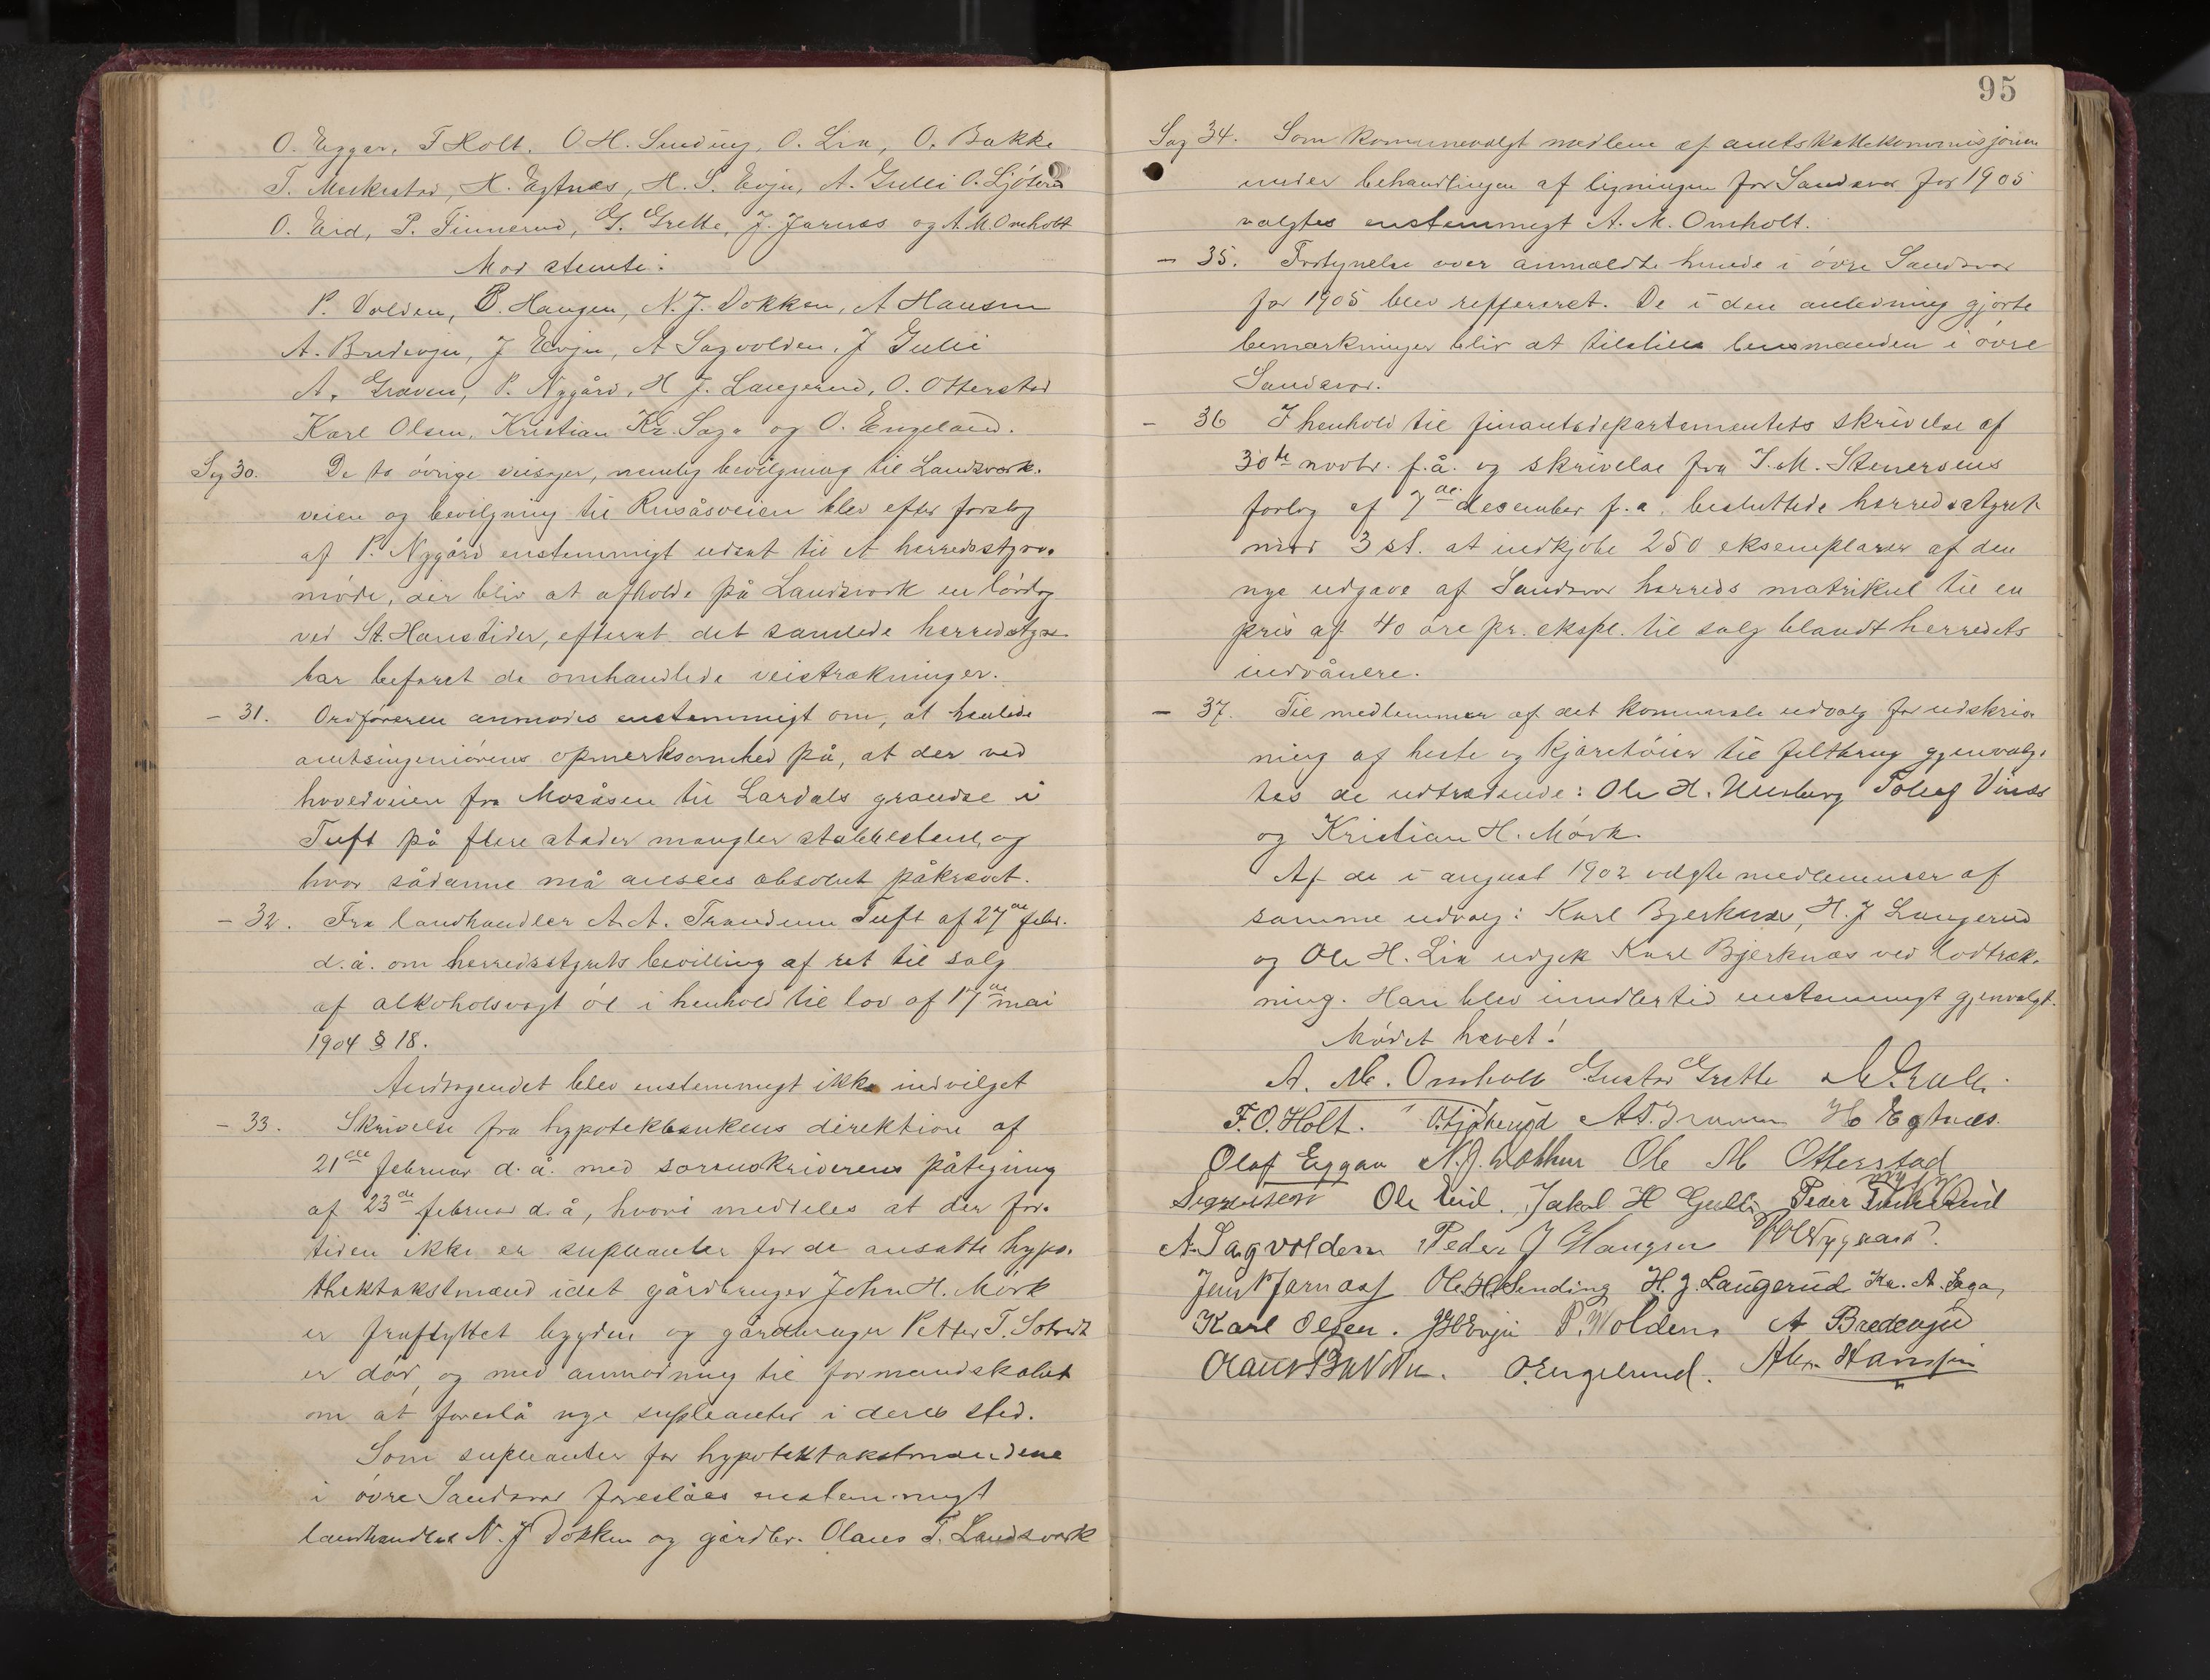 O. Eggar, T Holt, O H. Sending, O. Lia, O. Bakke
T. Muckestad, H. Egtnæs, H. S. Evju, A. Gulli O. Ljóterud
O. Eid, P. Tinnerud, G. Grette, J. Jarnæs og A. M. Omholt
Mod stemte:
P. Volden, P. Haugen, N. J. Dokken, A Hansen
A. Bredevju, J Evju, A Sagvolden, J Gulli
A. Graven, P. Nygård, H J. Laugerud, O. Otterstad
Karl Olsen, Kristian Kr. Saga og O. Engelund.
Sag 30. De to óvrige veisager, nemlig bevilgning til Landsverk-
veien og bevilgning til Rusåsveien blev efter forslag
af P. Nygård enstemmigt udsat til et herredsstyre-
móde, der bliv at afholde på Landsverk en lórdag
ved St. Hanstider, efterat det samlede herredsstyre
har befaret de omhandlede veistrækninger.
- 31. Ordfóreren anmodes enstemmigt om, at henlede
amtsingeniórens opmerksomhed på, at der ved
hovedveien fra Mosåsen til Lardals grændse i
Tuft på flere steder mangler stabbestene, og
hvor sådanne må ansees absolut påkrævet.
- 32. Fra landhandler A. A. Trandum Tuft af 27de febr.
d. å. om herredsstyrets bevilling af ret til salg
af alkoholsvagt ól i henhold til lov af 17de mai
1904 § 18.
Andragendet blev enstemmigt ikke indvilget
- 33. Skrivelse fra hypotekbankens direktion af
21de februar d. å. med sorenskriverens påtegning
af 23de februar d. å, hvori meddeles at der for-
tiden ikke er supleanter for de ansatte hypo-
thektakstmænd idet gårdbruger John H. Mórk
er fraflyttet bygden og gårdbruger Petter T.
er dód, og med anmodning til formandskabet
om at foreslå nye supleanter i deres sted.
Som supleanter for hypotektakstmændene
i óvre Sandsvær foreslåes enstemmigt
landhandler N. J Dokken og gårdbr. Olaus T. Landsverk
95
Sag 34. Som kommunevalgt medlem af amtsskattekommisjonen
under behandlingen af ligningen for Sandsvær for 1905
valgtes enstemmigt A. M. Omholt.
- 35. Fortegnelse over anmeldte hunde i óvre Sandsvær
for 1905 blev refereret. De i den anledning gjorte
bemærkninger bliv at tilstille lensmanden i óvre
Sandsvær.
- 36 I henhold til finantsdepartementets skrivelse af
30te novbr. f. å. og skrivelse fra J. M. Stenersens
forlag af 7de december f. a. besluttede herredsstyret
mod 3 st. at indkjóbe 250 eksemplarer af den
nye udgave af Sandsvær herreds matrikul til en
pris af 40 óre pr. ekspl. til salg blandt herredets
indvånere.
- 37. Til medlemmer af det kommunale udvalg for udskriv-
ning af heste og kjóretóier til feltbrug gjenvalg-
tes de udtrædende: Ole H. Tollef Vinæs
og Kristian H. Mórk.
Af de i august 1902 valgte medlemmer af
samme udvalg: Karl Bjerknæs, H. J Laugerud
og Ole H. Lia udgik Karl Bjerknæs ved lodtræk-
ning. Han blev imidlertid enstemmigt gjenvalgt.
Módet hævet!
A. M. Omholt Gustav Grette A. Gulli.
F. O. Holt. O. Ljóterud H Egtnæs.
Olaf Eggar N. J. Dokken Ole M Otterstad
Ole Eid. Jakob H Gulli Peder Tinnerud
A. Sagvolden Peder J Haugen P. Nygaard.
Jarnæss Ole H Sending H. J. Laugerud Kr. A. Saga,
Karl Olsen. J H Evju P. Wolden. A Bredevju
Olaus Bakke. O. Engelund. Alex. Hanssen